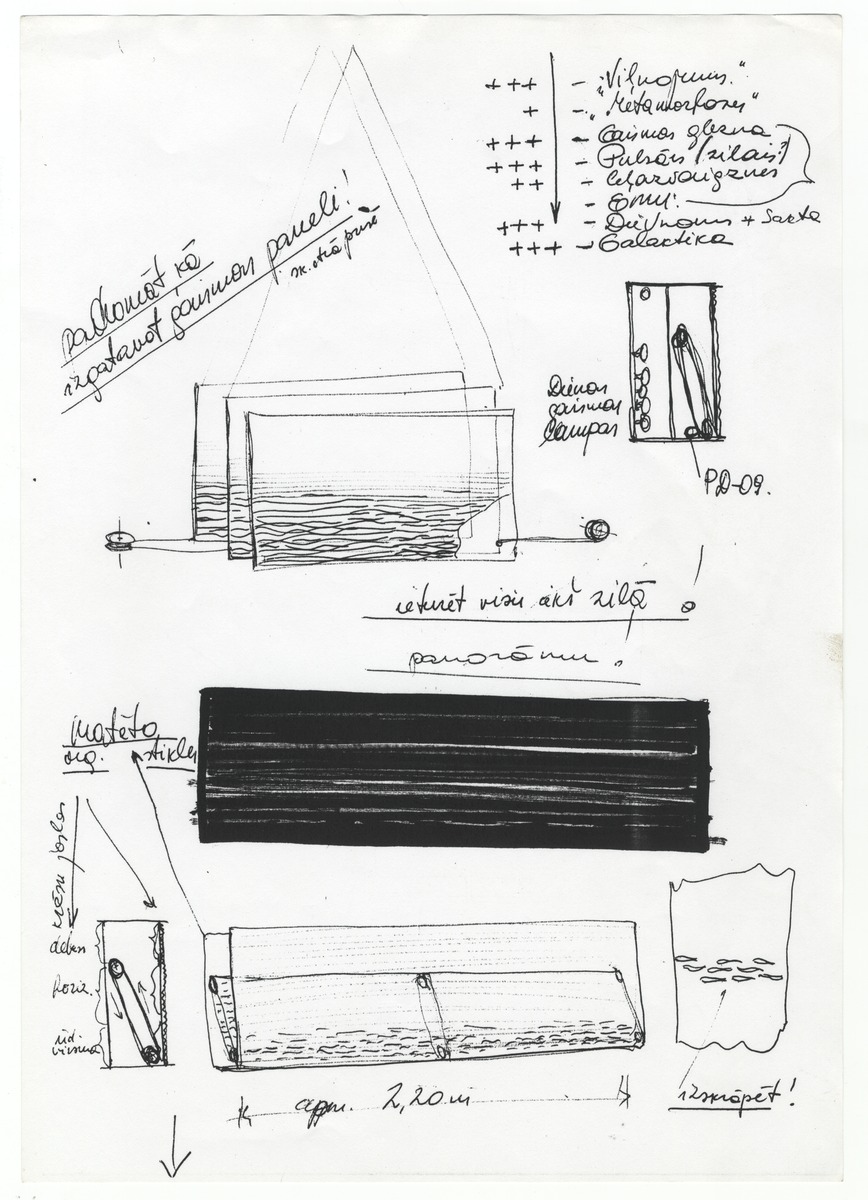 +++ - "Viļņojums."
+ - "Metamorfozes"
+++ - Gaismas glezna
+++ - Pulsārs (zilais?)
++ -
- EMU.
+++ - + Saxta
+++ - Galaktika
padomāt kā
izgatavot gaismas paneli!
sk. otrā pusē
Dienas
gaismas
lampas
PD-09.
ieturēt visu zilā
panorāmu.
Matēto
org. stikls
krāsu joslas
debess
horiz.
ūd.
virsma
apm. 2,20 m
izskrāpēt!